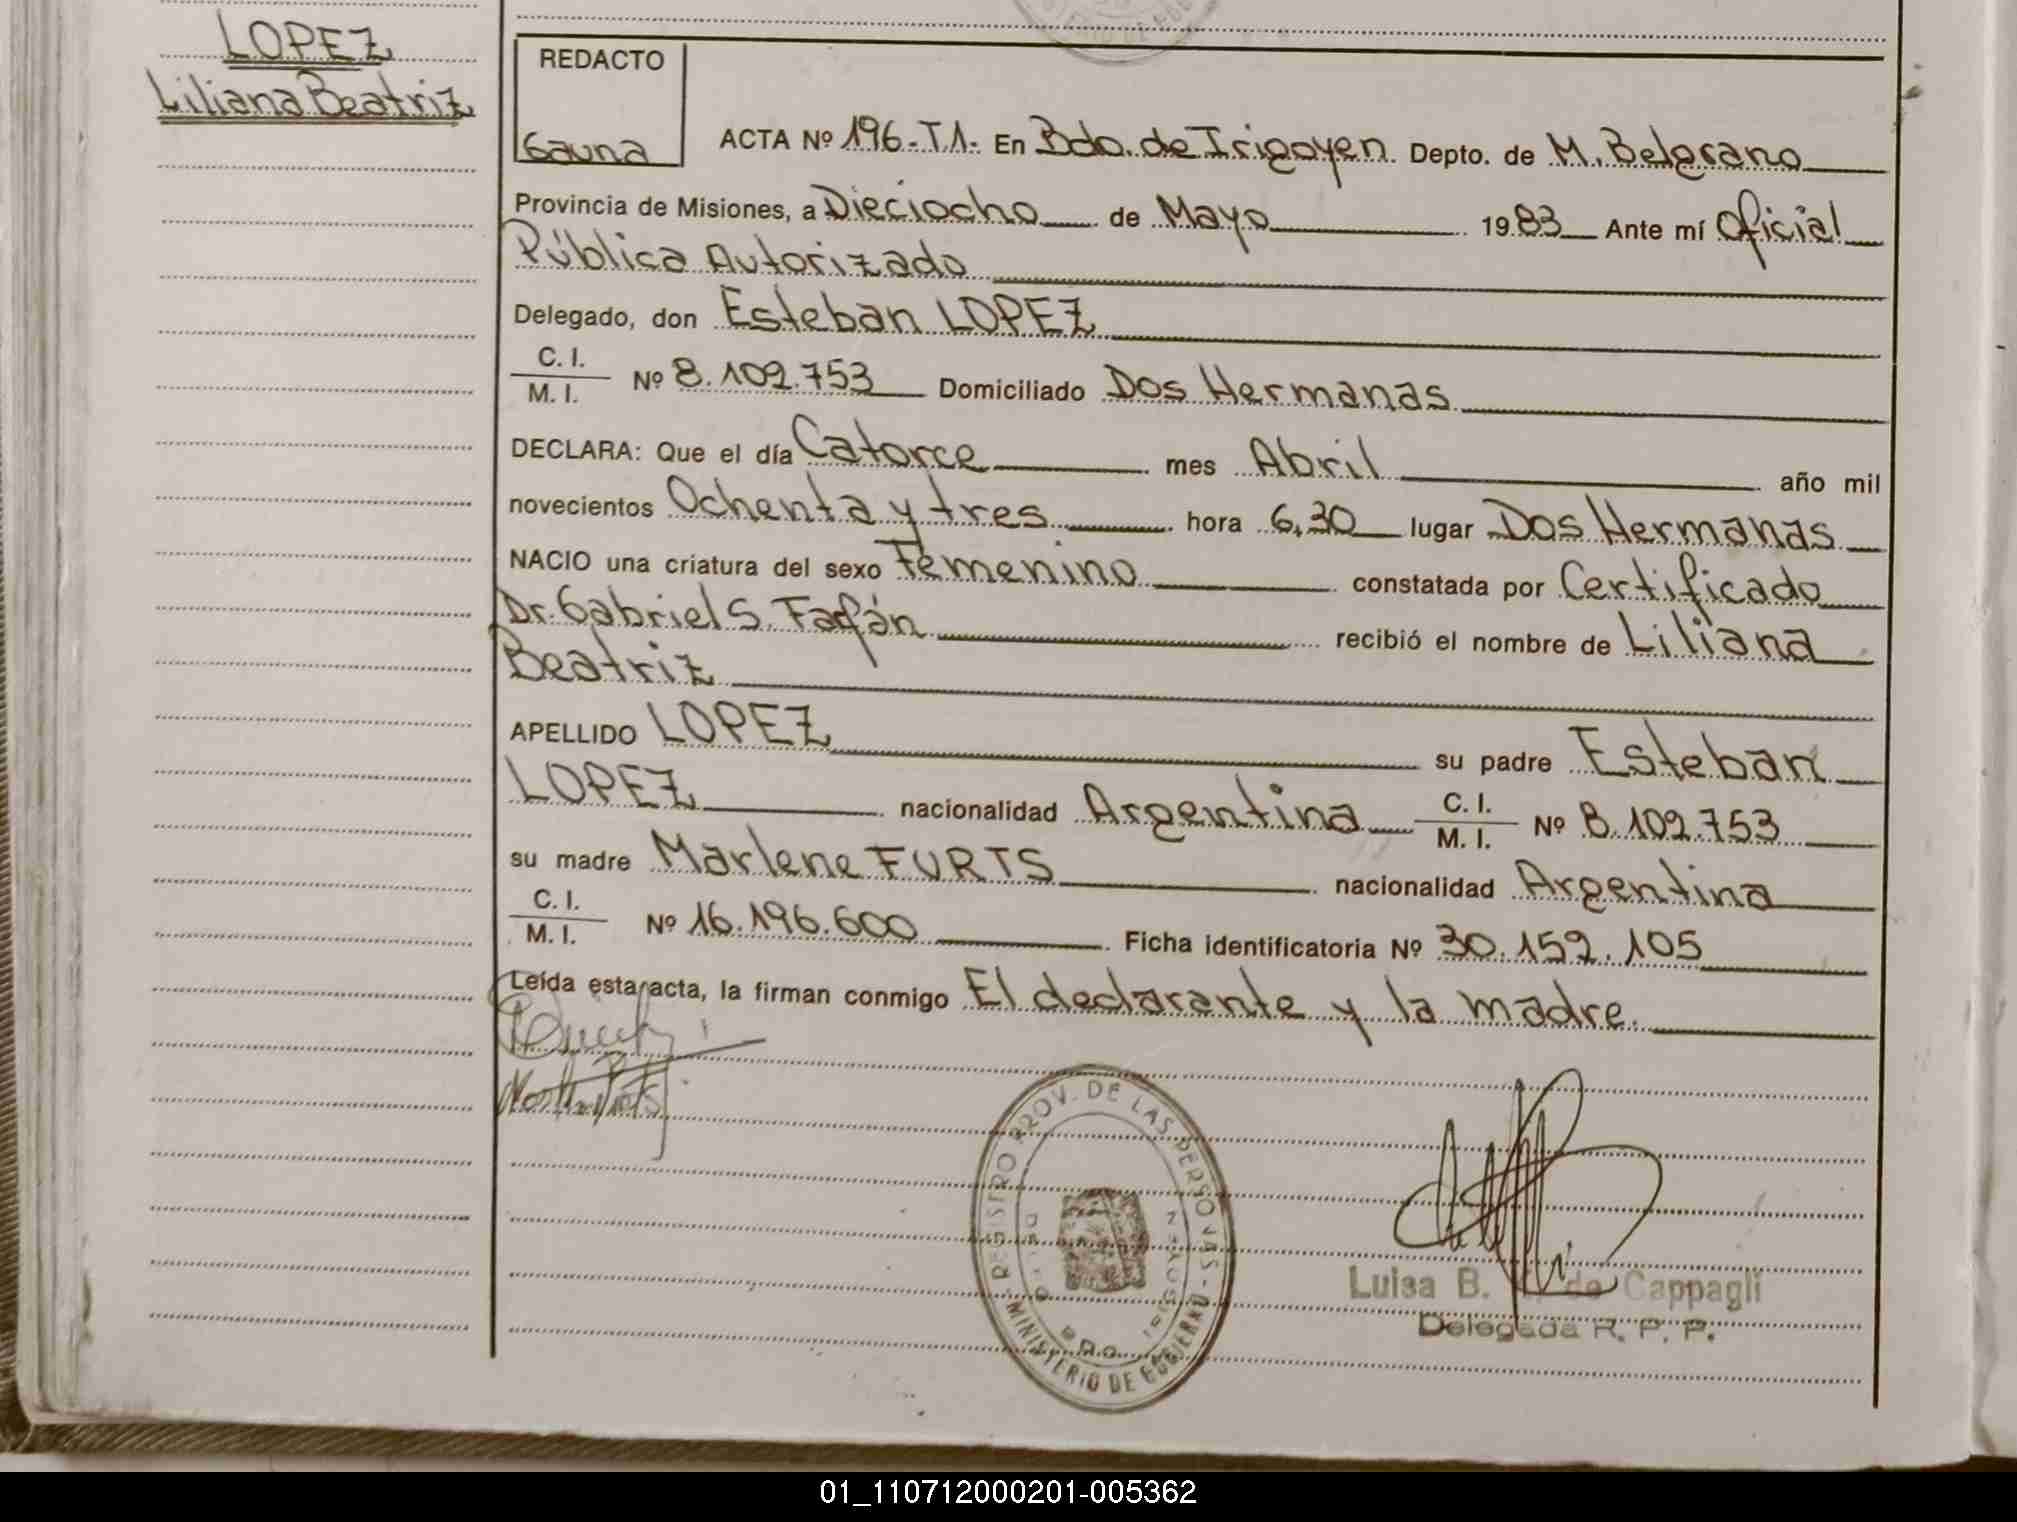 LOPEZ
Liliana Beatriz
REDACTO
Gauna
ACTA Nº 196-T1- En Bdo. de Irigoyen Depto. de M. Belgrano
Provincia de Misiones, a Dieciocho de Mayo 1983 Ante mí Oficial
Pública Autorizado
Delegado, don Esteban LOPEZ
C. I.
M. I. Nº 8.109.753 Domiciliado Dos Hermanas
DECLARA: Que el día Catorce mes Abril año mil
novecientos Ochenta y tres hora 6,30 lugar Dos Hermanas
NACIO una criatura del sexo Femenino constatada por Certificado
Dr. Gabriel S. recibió el nombre de Liliana
Beatriz
APELLIDO LOPEZ su padre Esteban
LOPEZ nacionalidad Argentina C. I.
M. I. Nº 8.109.753
su madre Marlene FURTS nacionalidad Argentina
C. I.
M. I. Nº 16.196.600 Ficha identificatoria Nº 30.159.105
Leída esta acta, la firman conmigo El declarante y la madre.
REGISTRO PROV. DE LAS PERSONAS -
MINISTERIO DE GOBIERNO
Luisa B. de Cappagli
Delegada R. P. P.
01_110712000201-005362